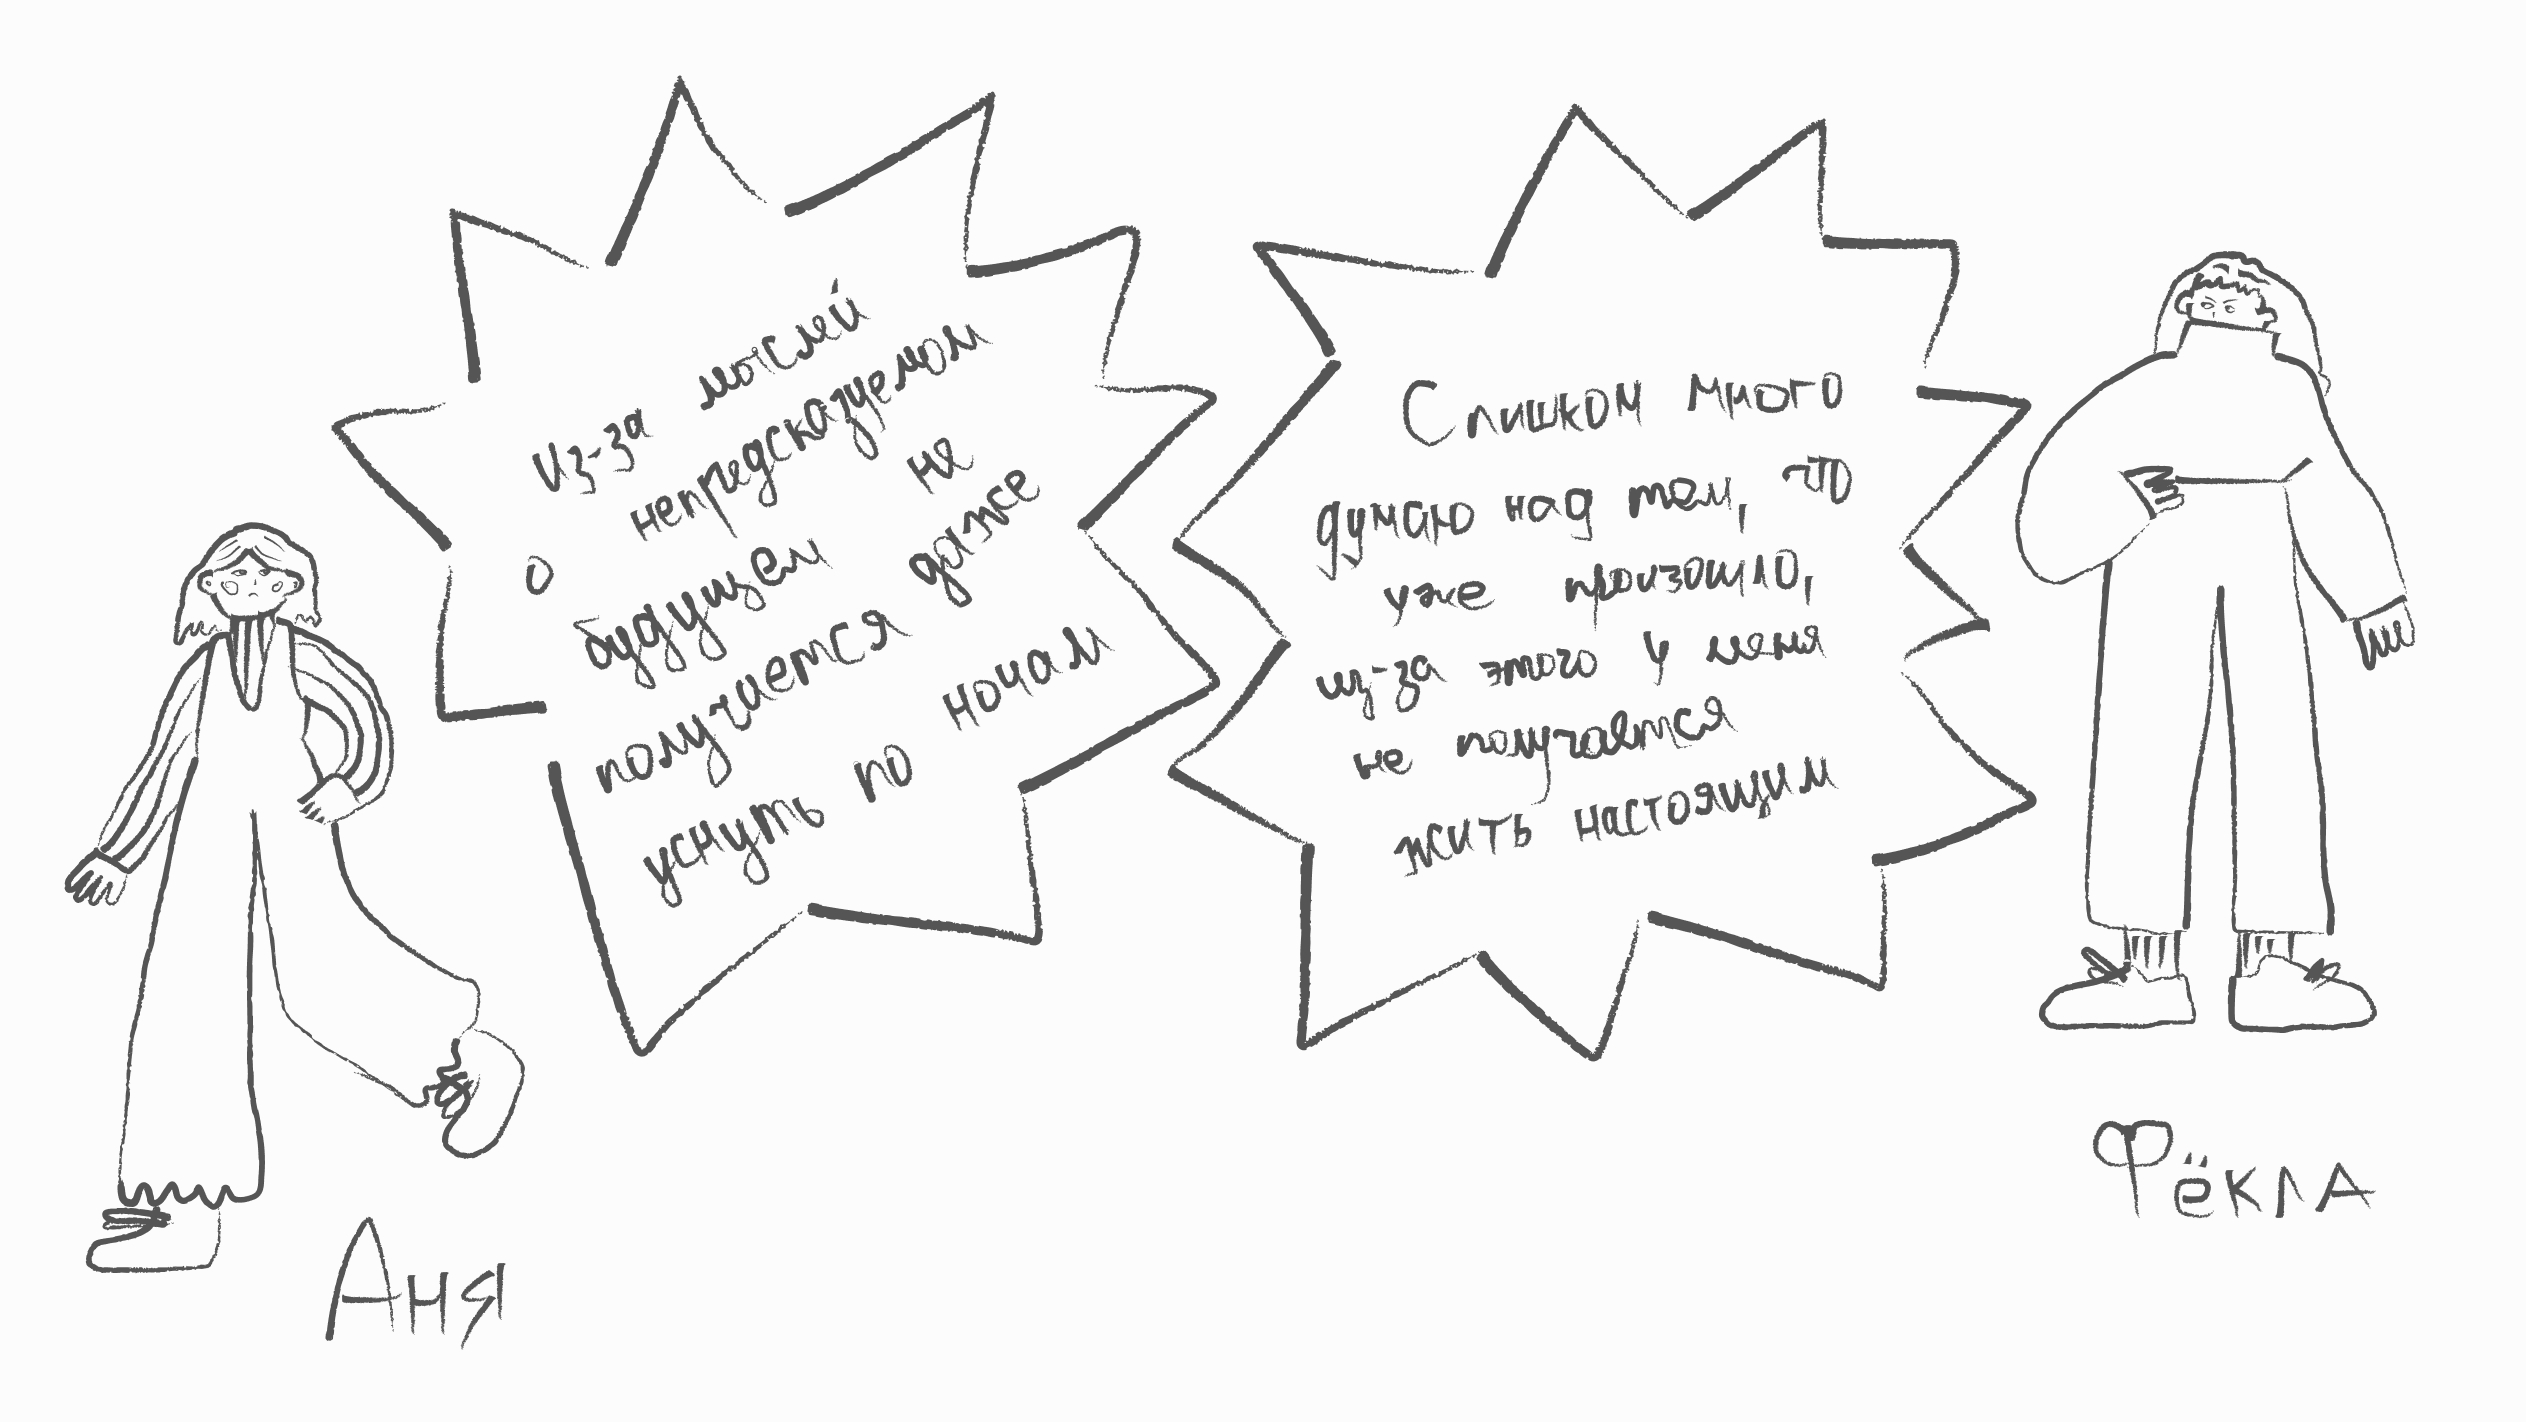 Из-за мыслей
о непредсказуемом
будущем не
получается даже
уснуть по ночам
Слишком много
думаю над тем, что
уже произошло,
из-за этого у меня
не получается
жить настоящим
Аня
Фёкла